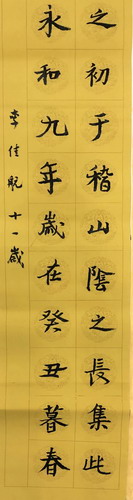 永和九年歲在癸丑暮春
之初于稽山陰之長集此
李佳 十一歲